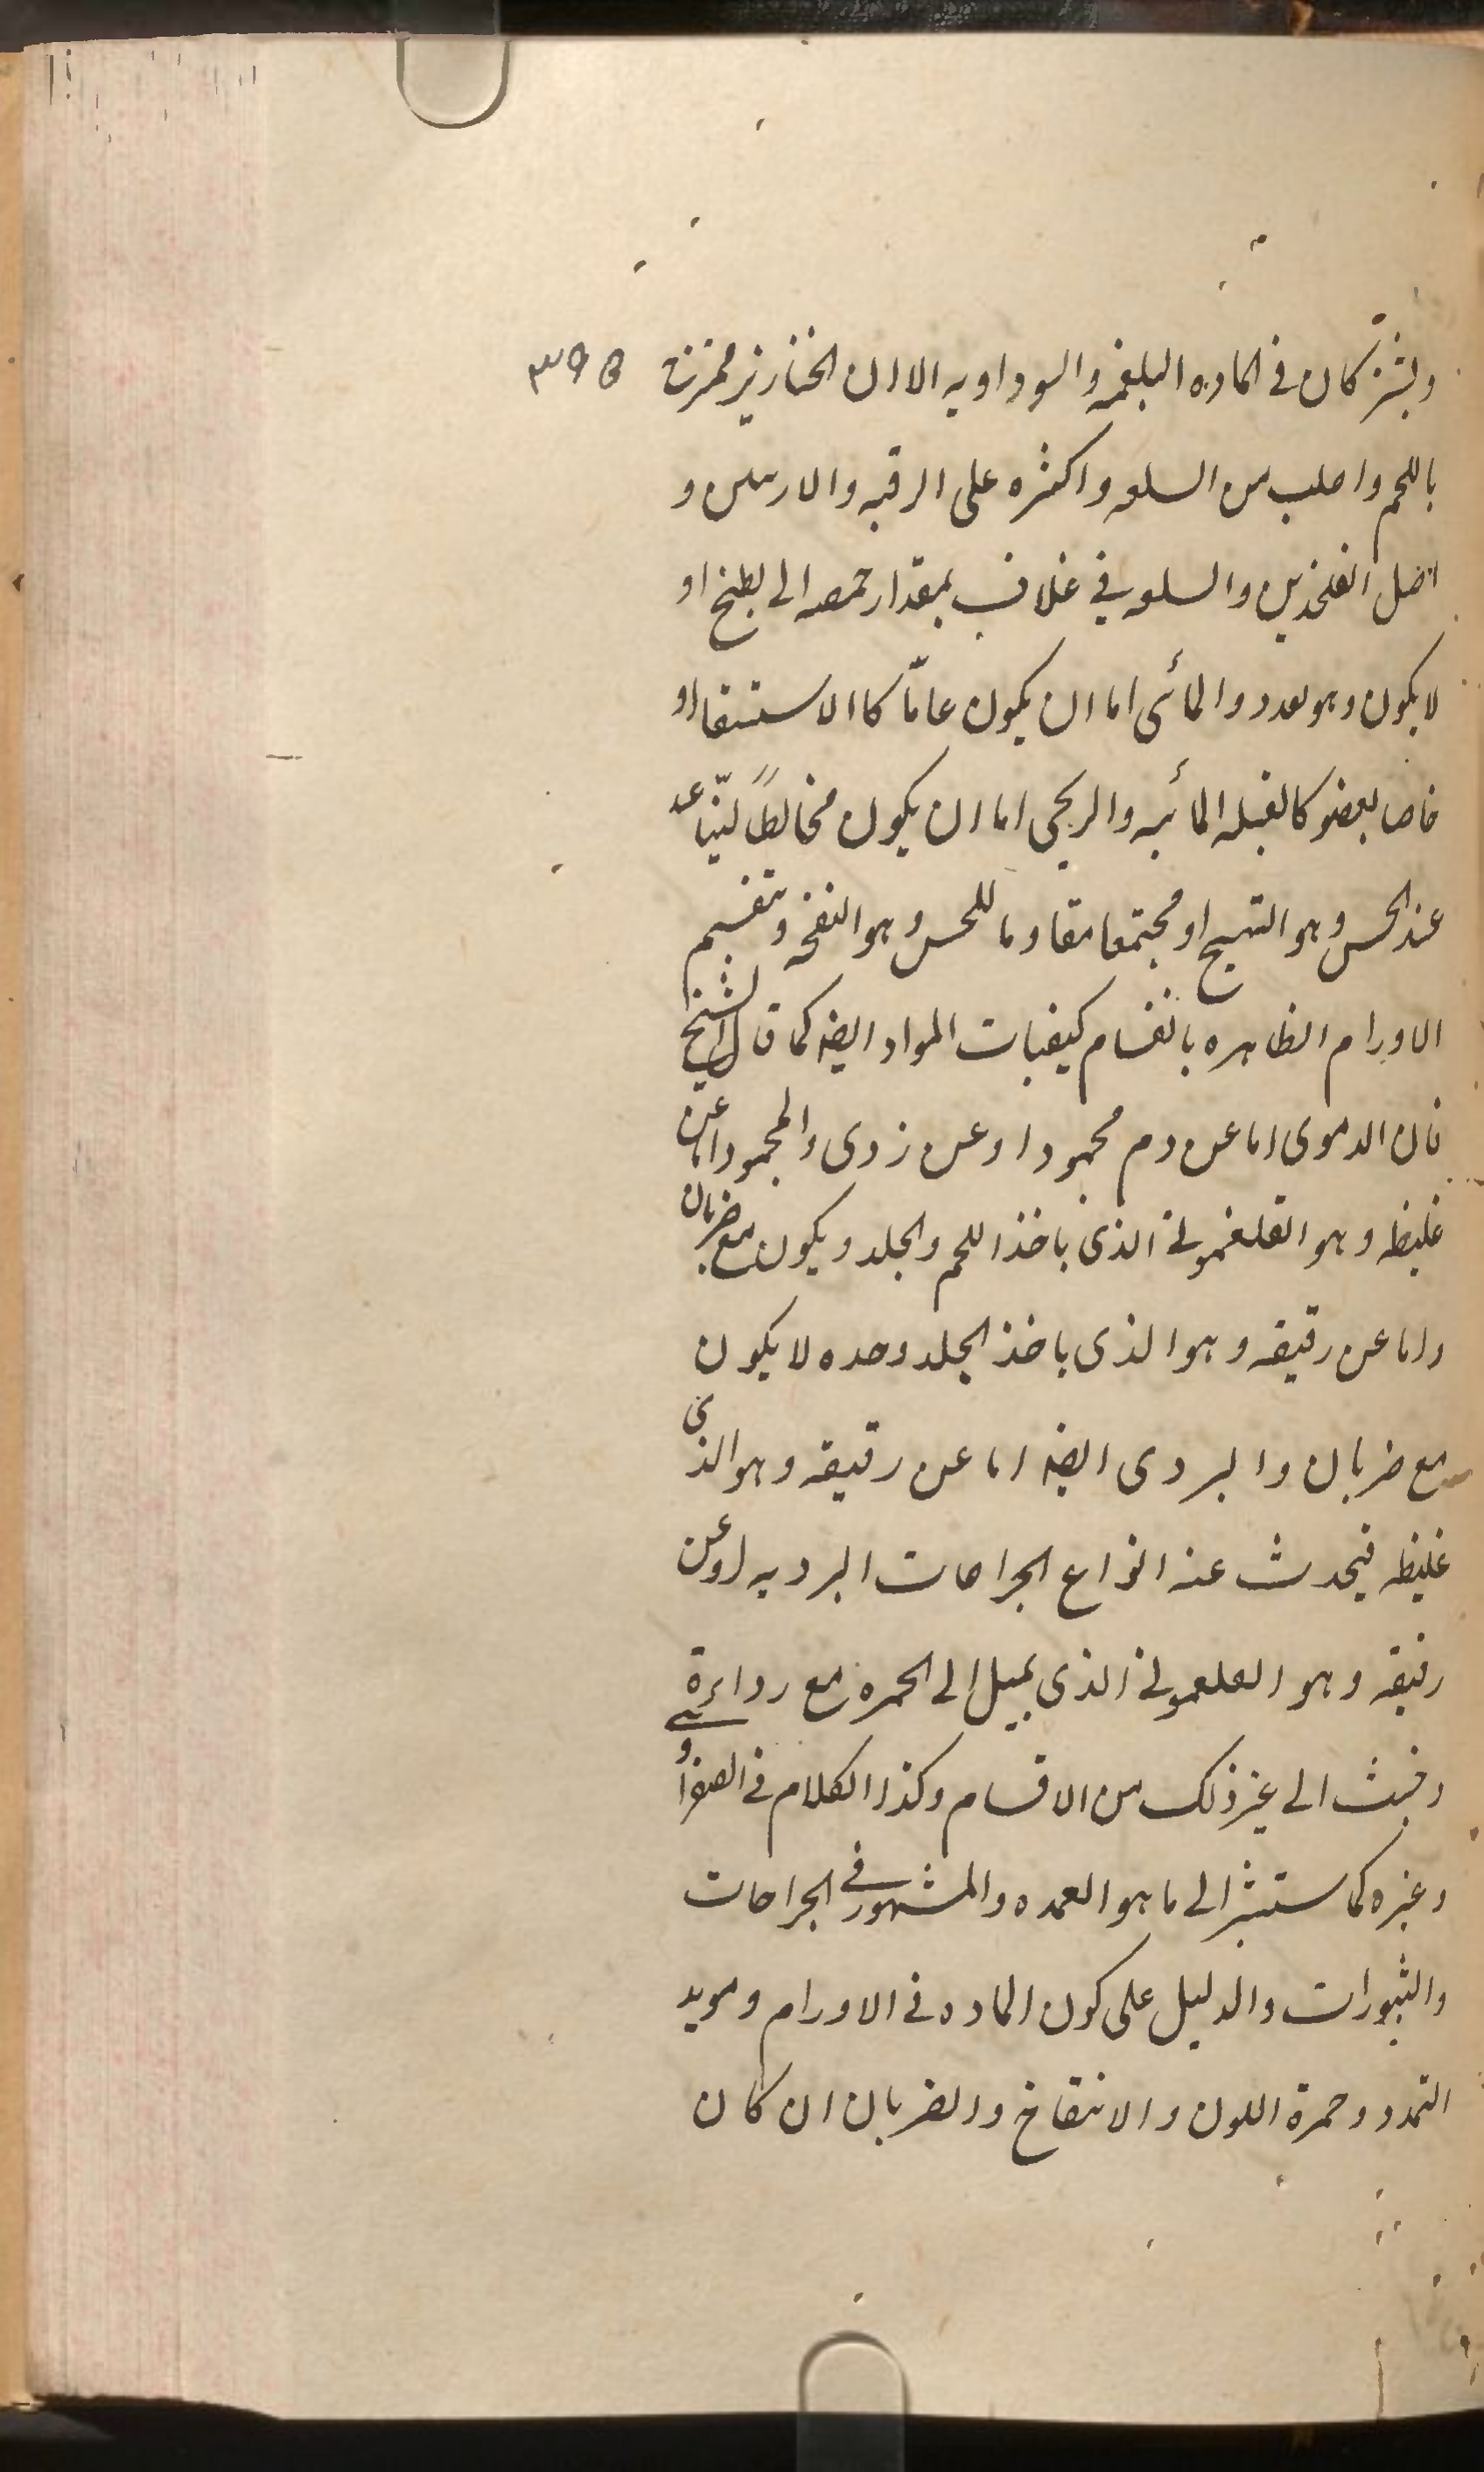 ويشتركان فى الماده البلغميه والسوداويه الا ان الخنازير مختزنة ٣٩٥
باللحم واصلب من السلعه واكثره على الرقبه والاربيتين و
اصل الفخذين والسلعه فى غلاف بمقدار حمصه الى بطيخ او
لا يكون وهو لعدد والمائى اما ان يكون عامّا كاالاستسقا او
خاصا بعضو كالقيله المائيه والريحى اما ان يكون مخالطًا ليّنا عد
عند الحس وهو التهيج او مجتمعا مقاوما للحس وهو النفخه وتنقسم
الاورام الظاهره بانقسام كيفيات المواد ايضه كما قال الشيخ
فان الدموى اما عن دم محمود او عن ردى والمحمود اما عن
غليظه وهو الفلغمونى الذى ياخذ اللحم والجلد ويكون مع ضربان
واما عن رقيقه وهو الذى ياخذ الجلد وحده لا يكون
مع ضربان والردى ايضه اما عن رقيقه وهو الذى
غليظه فيحدث عنه انواع الجراحات الرديه او عن
رقيقه وهو الفلغمونى الذى يميل الى الحمره مع رداءة
وخبث الى غير ذلك من الاقسام وكذا الكلام فى الصفراء و
وغيره كما ستشير الى ما هو العمده والمشهور فى الجراحات
والثبورات والدليل على كون الماده فى الاورام دمويه
التمدد وحمرة اللون والانتفاخ والضربان ان كان